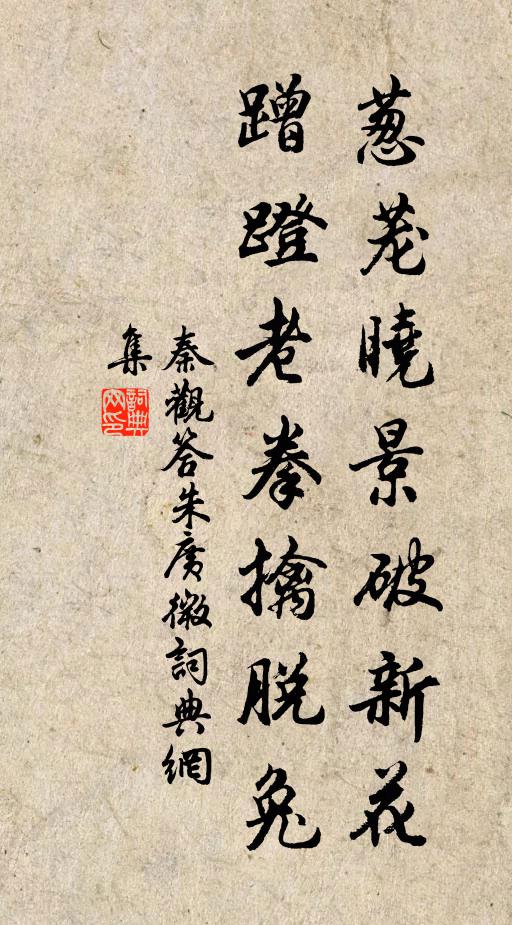 葱茏曉景破新花
蹭蹬老拳擒脱兔
秦觀答朱廣微詞典網
集
詞典
網印